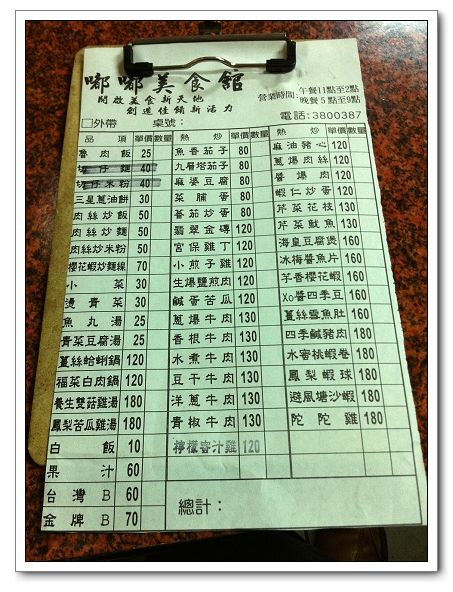 嘟嘟美食館
開啟美食新天地
創造佳餚新活力
營業時間: 午餐11點至2點
晚餐5點至9點
□外帶 桌號: 電話:3800387
品項 單價 數量 熱炒 單價 數量 熱炒 單價 數量
魯肉飯 25 魚香茄子 80 麻油豬心 120
切仔麵 40 九層塔茄子 80 蔥爆肉絲 120
切仔米粉 40 麻婆豆腐 80 醬爆肉 120
三星蔥油餅 30 菜脯蛋 80 蝦仁炒蛋 120
肉絲炒飯 50 蕃茄炒蛋 80 芹菜花枝 130
肉絲炒麵 50 翡翠金磚 120 芹菜魷魚 130
肉絲炒米粉 50 宮保雞丁 120 海皇豆腐煲 160
櫻花蝦炒麵線 70 小煎子雞 120 冰梅醬魚片 160
小菜 30 生爆鹽煎肉 120 芋香櫻花蝦 160
燙青菜 30 鹹蛋苦瓜 120 Xo醬四季豆 160
魚丸湯 25 蔥爆牛肉 130 薑絲雲魚肚 160
青菜豆腐湯 50 香根牛肉 130 四季鹹豬肉 180
薑絲蛤蜊鍋 120 水煮牛肉 130 水蜜桃蝦卷 180
福菜白肉鍋 120 豆干牛肉 130 鳳梨蝦球 180
養生雙菇雞湯 180 洋蔥牛肉 130 避風塘沙蝦 180
鳳梨苦瓜雞湯 180 青椒牛肉 130 陀陀雞 180
白飯 10 檸檬蜜汁雞 120
果汁 60
台灣B 60
金牌B 70
總計: